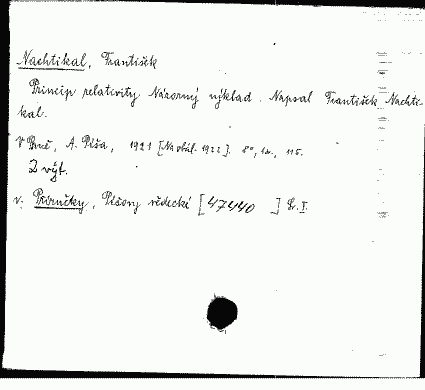 Nachtikal, František
Princip relativity Názorný výklad. Napsal František Nachti-
kal.
V Brně, A. Píša, 1921 [Na obál. 1922]. 8°, 115.
2 výt.
v: Příručky, Píšovy vědecké [47440 ] I.